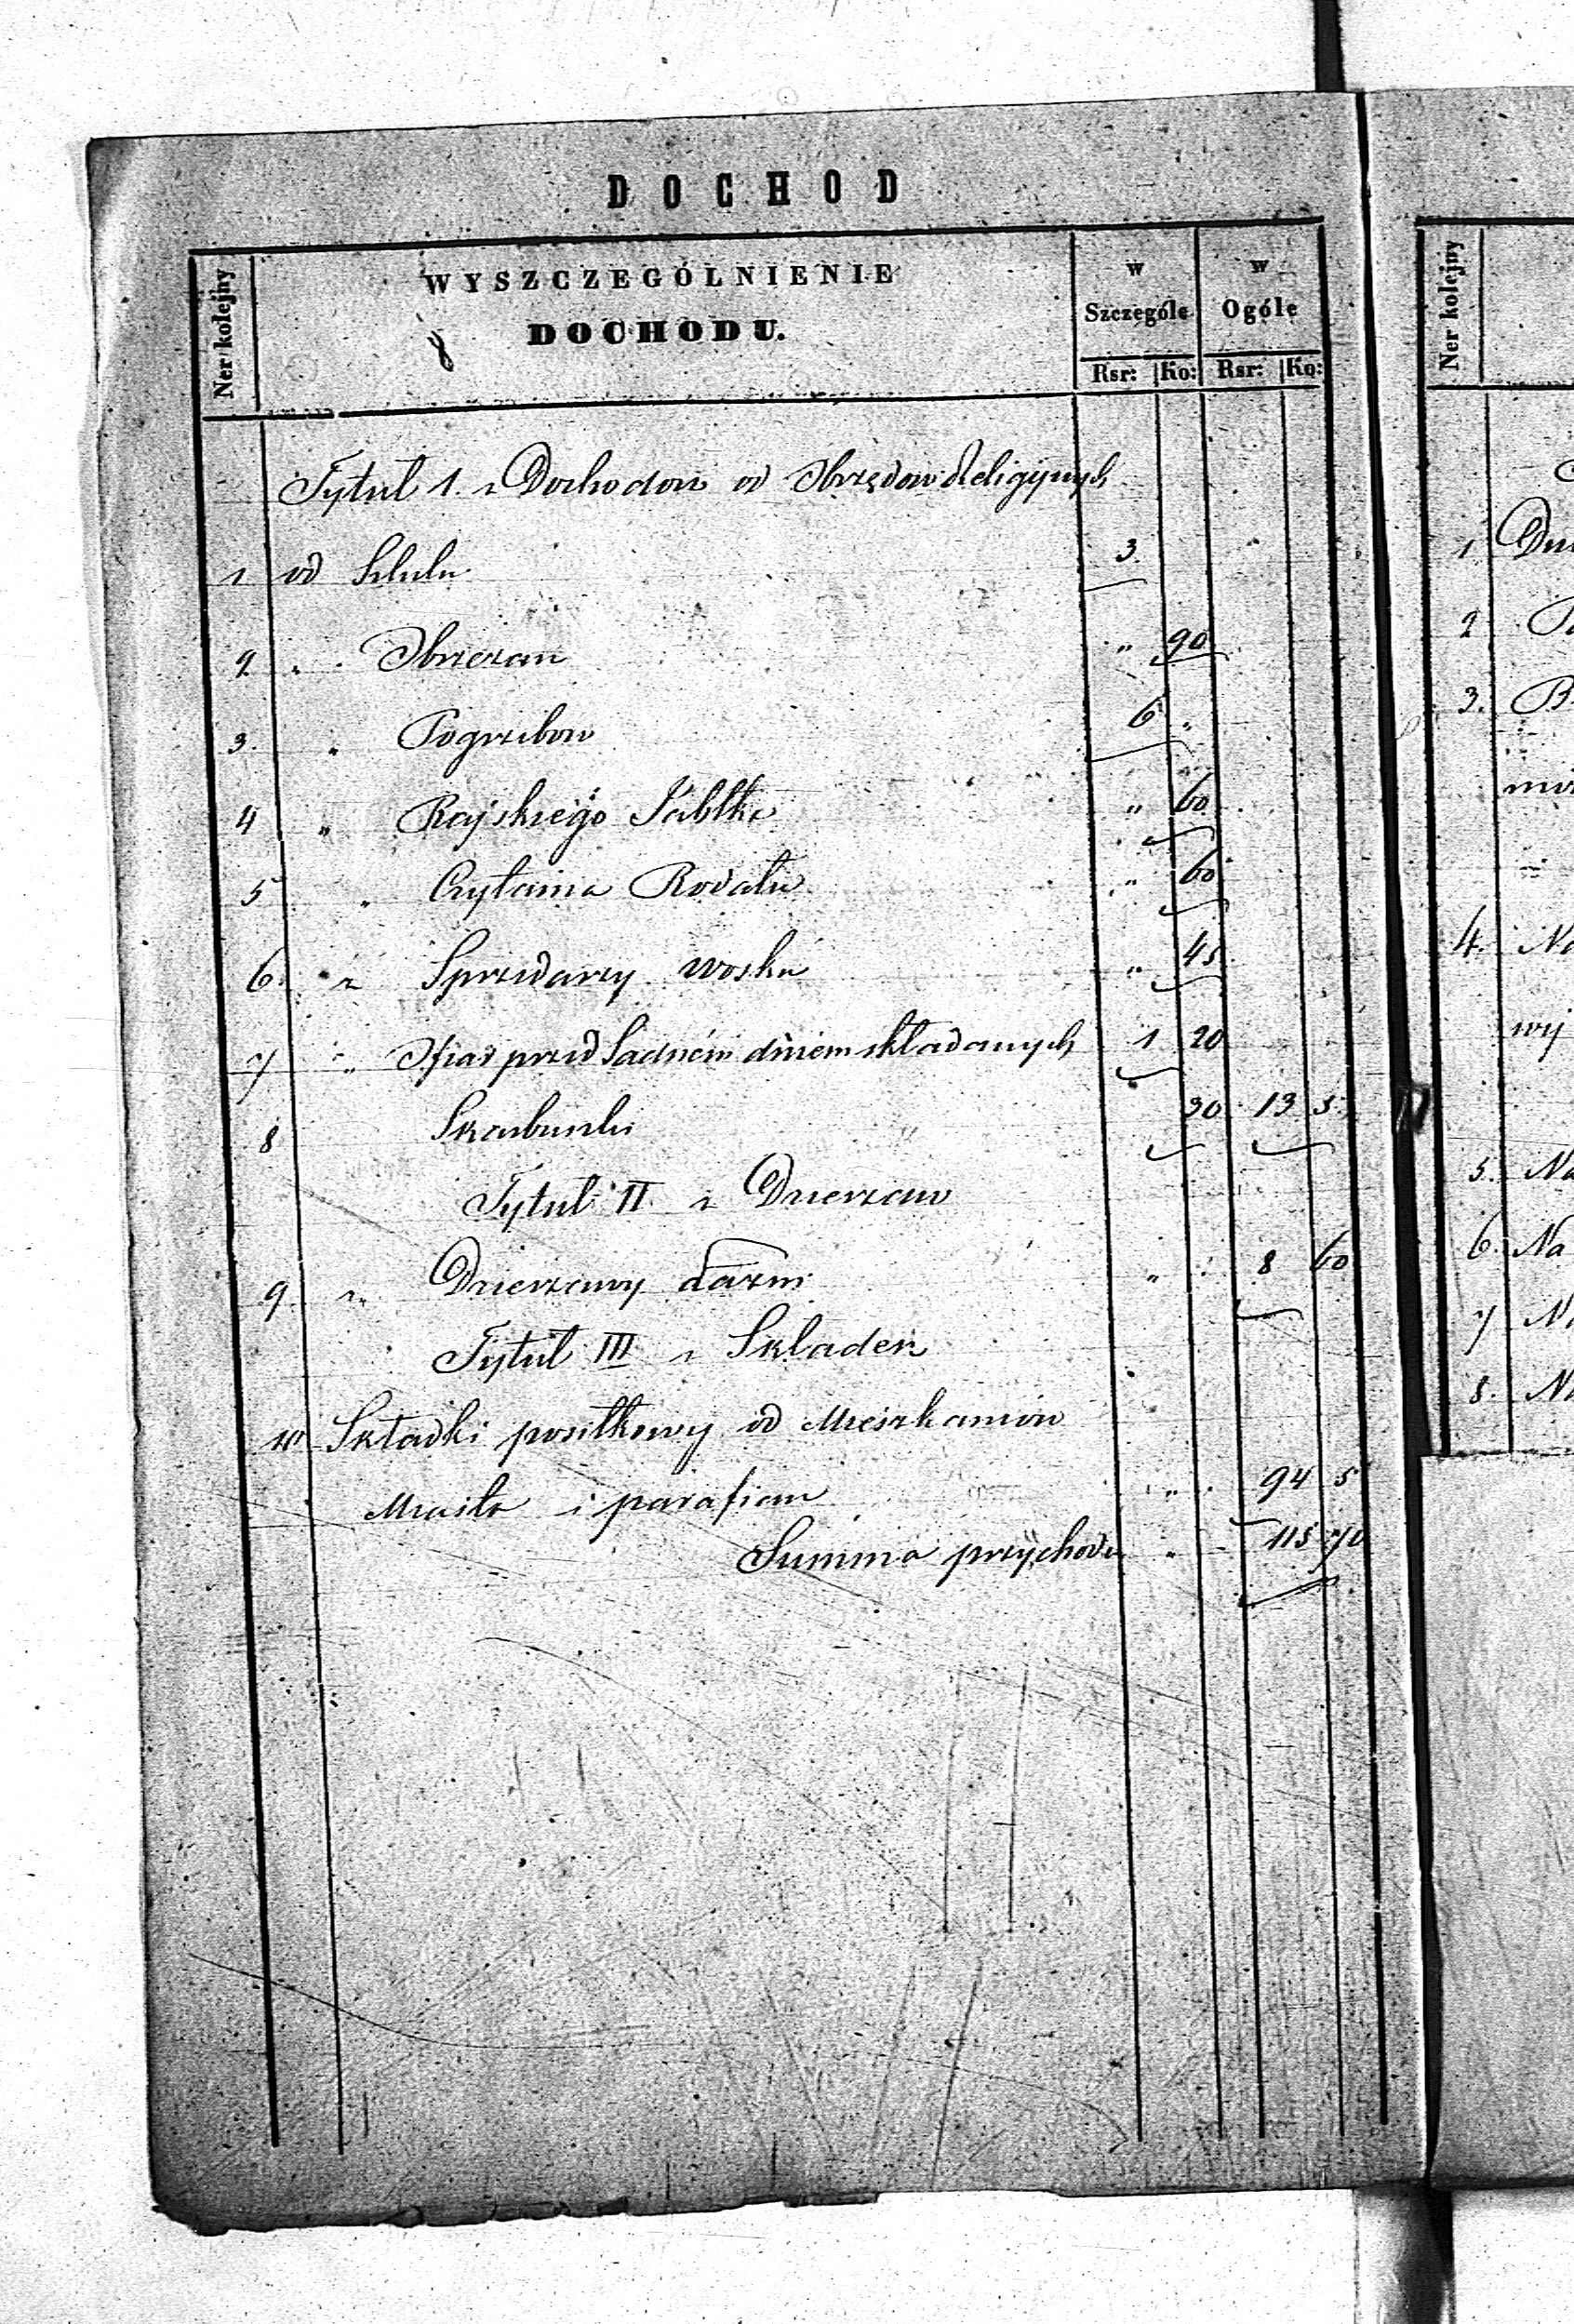 DOCHOD
Ner kolejny
WYSZCZEGÓLNIENIE
DOCHODU.
w Szczególe
w Ogóle
Rsr: Ko: Rsr: Ko:
Tytuł 1. z Dochodow od Obrzędow Religijnych
1 od Szlubu 3.
2 " " Obrzezan " 90
3. " Pogrzebow 6 "
4 " Rajskiego Jabłka " 60
5 " Czytania Rodału " 60
6. " z Sprzedarzy wosku " 45
7 " " Ofiar przed Sądném dniem składanych 1 20
8 Skarbunki 30 13 5
Tytuł II z Dzierzaw
9. z Dzierzawy łazni " " 8 60
Tytuł III z Składek
10 Składki posiłkowy od Mieszkancow
Miasta i parafian " " 94 5
Summa przychodu " " 115 70
Ner kolejny
1
2
3. B
4. Na
5. Na
6. Na
7
8.